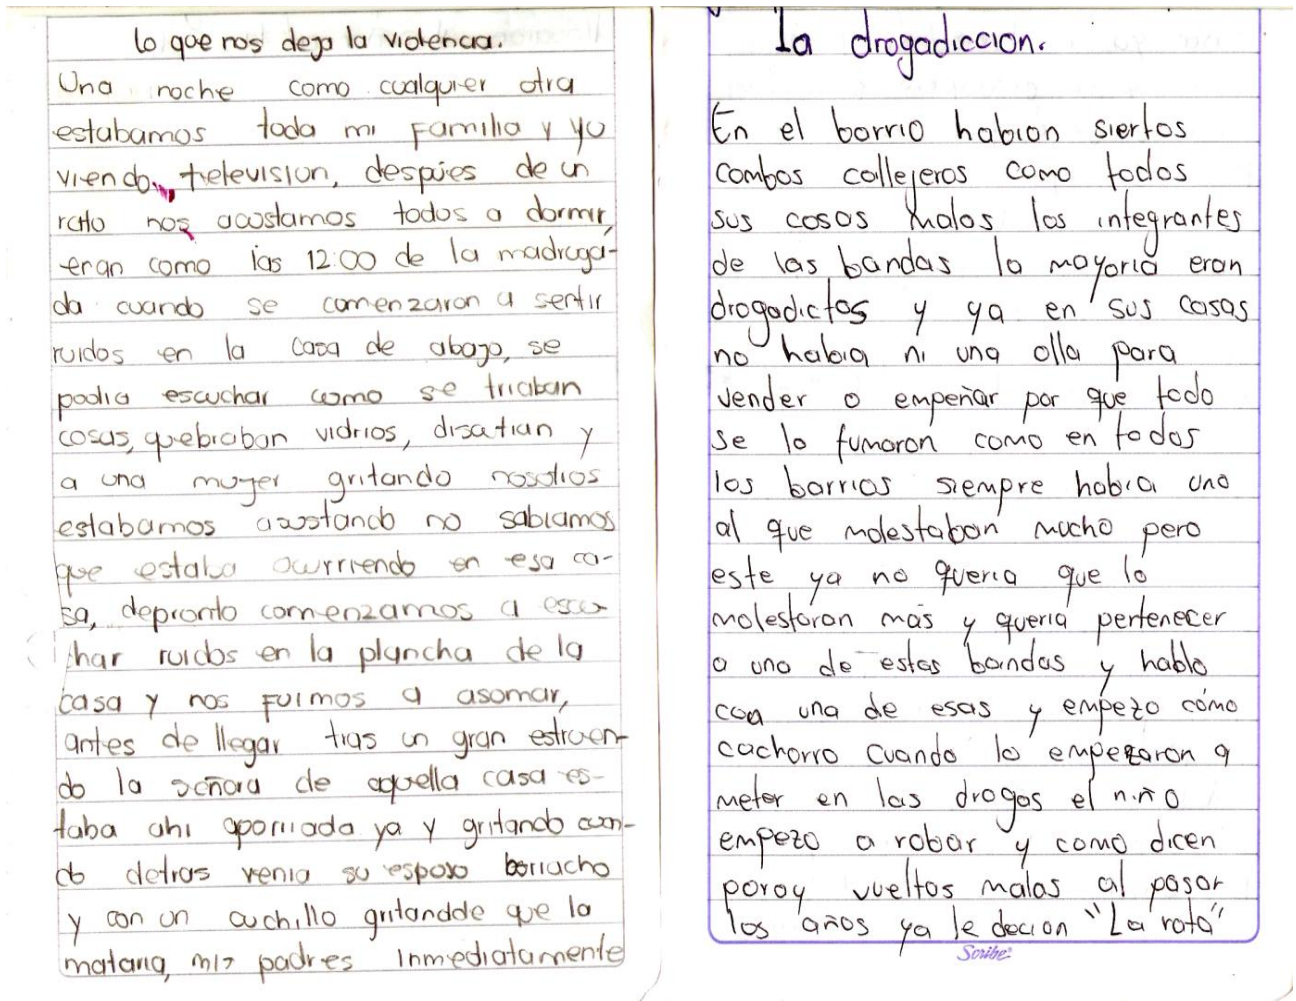 lo que nos dejo la violencia.
Una noche como cualquier otra
estabamos toda mi familia y yo
viendo television, despúes de un
rato nos acostamos todos a dormir,
eran como las 12:00 de la madruga-
da cuando se comenzaron a sentir
ruidos en la casa de abajo, se
podia escuchar como se triaban
cosas, quebraban vidrios, discutian y
a una mujer gritando nosotros
estabamos acostando no sabiamos
que estaba ocurriendo en esa ca-
sa, depronto comenzamos a escu-
char ruidos en la plancha de la
casa y nos fuimos a asomar,
antes de llegar tras un gran estruen-
do la señora de aquella casa es-
taba ahi aporriada ya y gritando cuan-
do detras venia su esposo borracho
y con un cuchillo gritandole que la
mataria, mis padres inmediatamente
La drogadiccion.
En el barrio habian siertos
combos callejeros como todos
sus cosas malas los integrantes
de las bandas la mayoria eran
drogadictos y ya en sus casas
no habia ni una olla para
vender o empeñar por que todo
se lo fumaron como en todos
los barrios siempre habia uno
al que molestaban mucho pero
este ya no queria que lo
molestaran más y queria pertenecer
a una de estas bandas y hablo
con una de esas y empezo cómo
cachorro cuando lo empezaron a
meter en las drogas el niño
empezo a robar y como dicen
poray vueltas malas al pasar
los años ya le decian "La rata"
Scribe